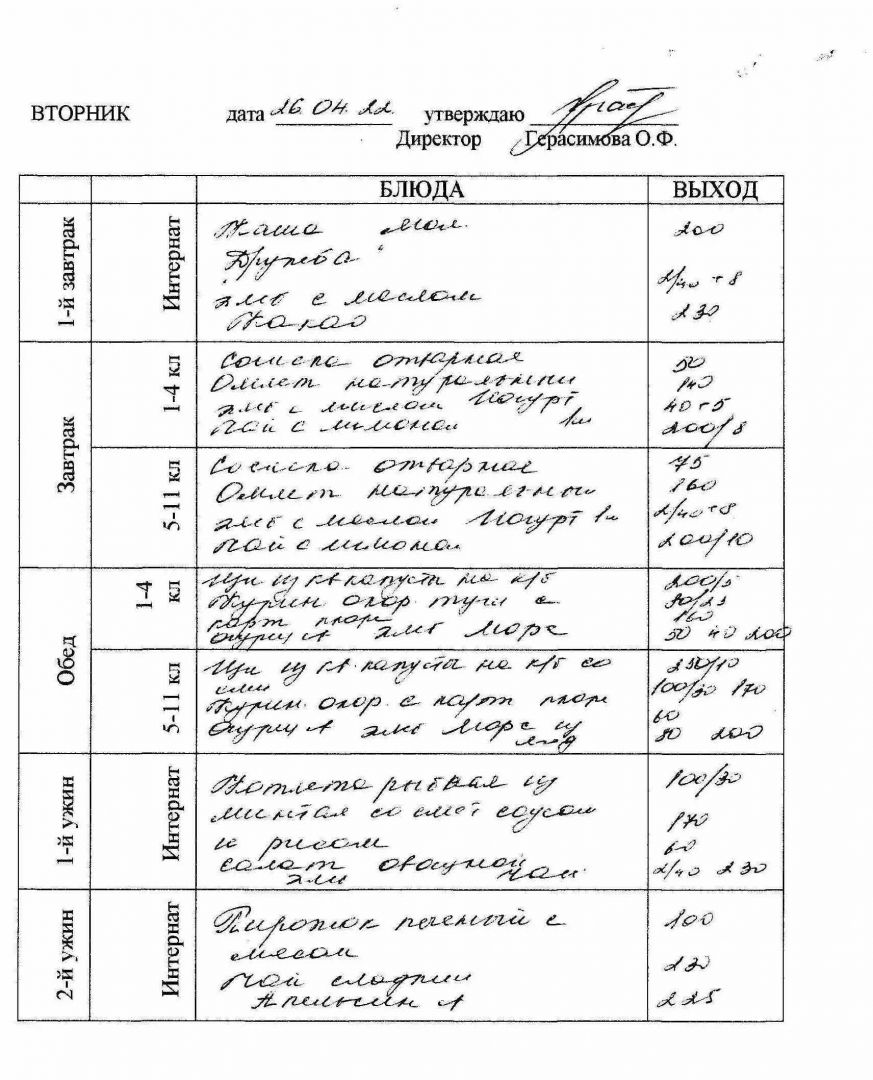 ВТОРНИК дата 26.04.22. утверждаю
Директор Герасимова О.Ф.
БЛЮДА ВЫХОД
1-й завтрак Интернат
Каша мол. 200
"Дружба"
хлеб с маслом 2/40+8
Какао 230
Завтрак 1-4 кл
Сосиска отварная 50
Омлет натуральный 140
хлеб с маслом Йогурт 40+5
Чай с лимоном 1шт 200/8
5-11 кл
Сосиска отварная 75
Омлет натуральный 160
хлеб с маслом Йогурт 1шт 2/40+8
Чай с лимоном 200/10
Обед 1-4 кл
Щи из кв капусты на к/б 200/5
Курин окор туш с 90/25
карт пюре 160
огурец хлеб Морс 50 40 200
5-11 кл
Щи из кв. капусты на к/б со 250/10
смет
Курин. окор. с карт пюре 100/30 170
60
огурец хлеб Морс из 80 200
ягод
1-й ужин Интернат
Котлета рыбная из 100/30
минтая со смет соусом
и рисом 170
салат овощной 60
хлеб чай 2/40 230
2-й ужин Интернат
Пирожок печеный с 100
мясом
Чай сладкий 230
Апельсин 225